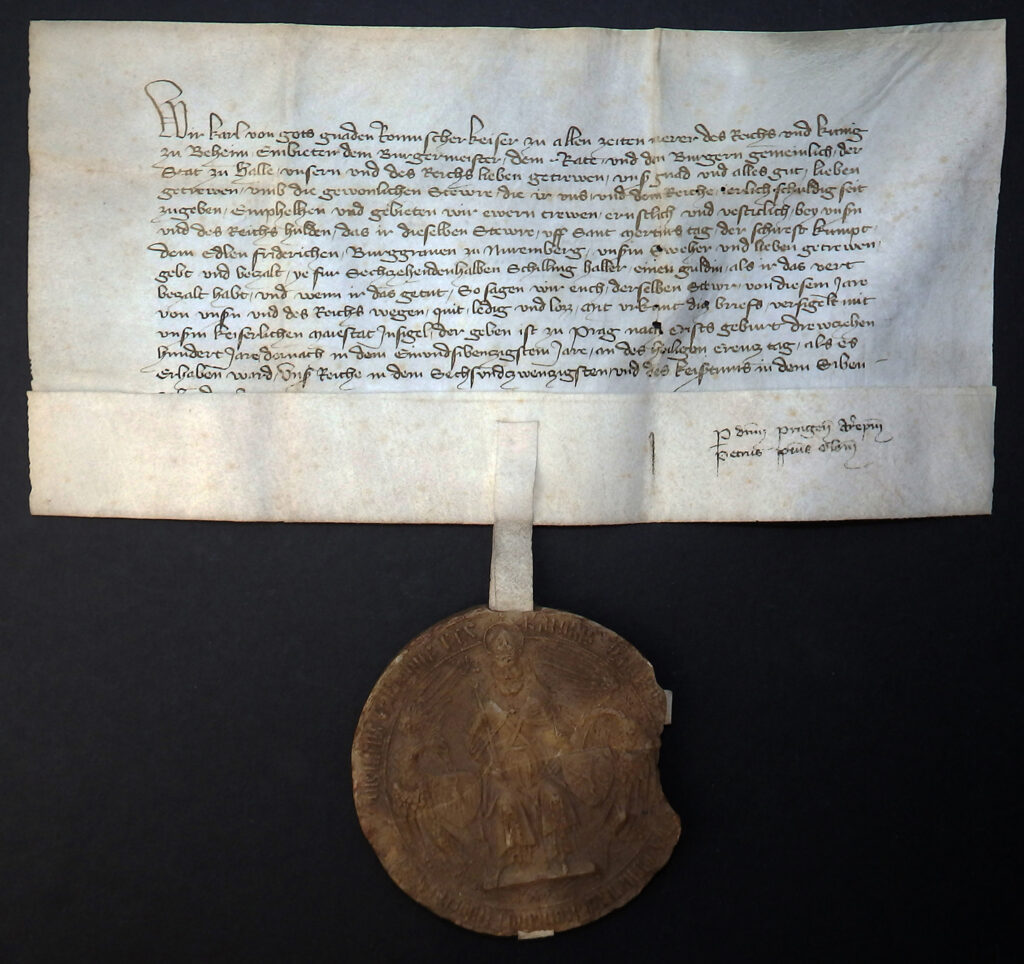 Wir karl von gots gnaden Romischer keiser zu allen zeiten merer des Reichs und kunig
zu Beheim Embieten dem Burgermeister, dem Rate und den Burgern gemeinlich der
Stat zu Halle unsern und des Reichs lieben getrewen, uns gnad und alles gut, lieben
getrewen, umb die gewonlichen Stewre die ir uns und dem Reiche ierlich schuldig seit
zugeben, Emphelhen und gebieten wir ewern trewen ernstlich und vesticlich bey unsn
und des Reichs hulden, das ir dieselben Stewre uff Sant mertins tag der schirest kumpt
dem Edlen friderichen Burggraven zu Nuremberg, unsm Sweher und lieben getrewen
gebt und bezalt, ye fur Sechzehendenhalben Schilling haller einen guldin, als ir das vert
bezalt habt, und wenn ir das getut, So sagen wir euch, derselben Stewr von diesem Jare
von unsn und des Reichs wegen, quit, ledig und loz, mit urkunt diz briefs versigelt mit
unsm keiserlichen maiestat Insigel, der geben ist zu Prag nach Crists geburt drewczehen
hundert Jare dornach in dem Einundsibenzigstem Jare, an des heiligen creuz tag, als es
Erhaben ward, uns Reiche in dem Sechsundzwenzigsten und des keisertums in dem Siben
P dnm Pragen Arepm
Petrus